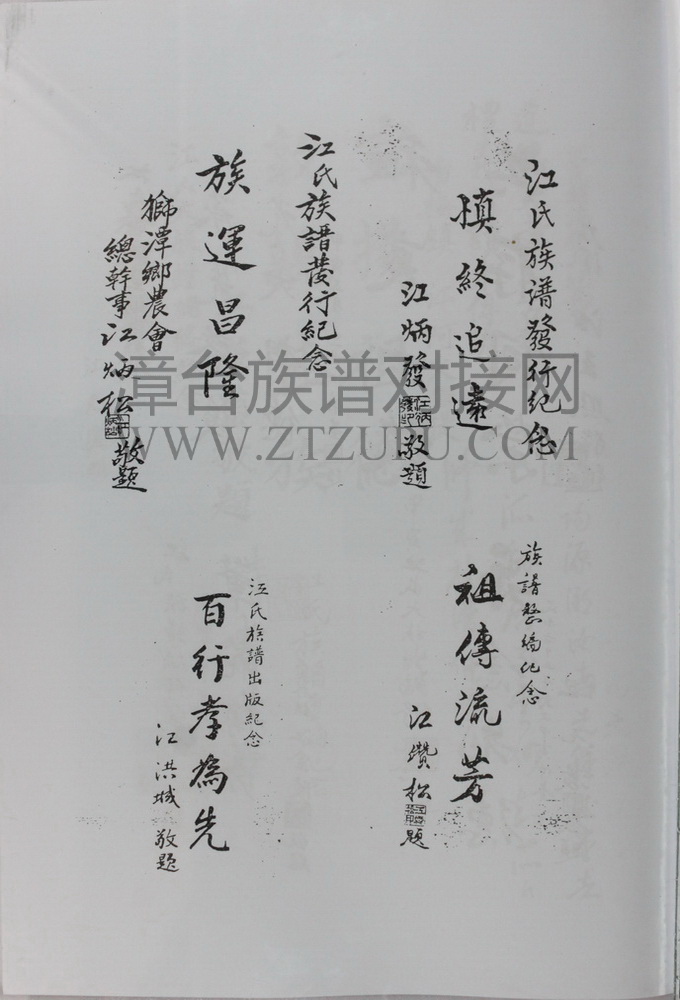 江氏族谱發行纪念
慎終追遠
江炳發 敬題
江氏族譜發行紀念
族運昌隆
獅潭鄉農會
總幹事 江炳松 敬題
族譜整編纪念
祖傳流芳
江鑽松 題
江氏族譜出版紀念
百行孝為先
江洪城 敬題
漳台族谱对接网
WWW.ZTZUPU.COM